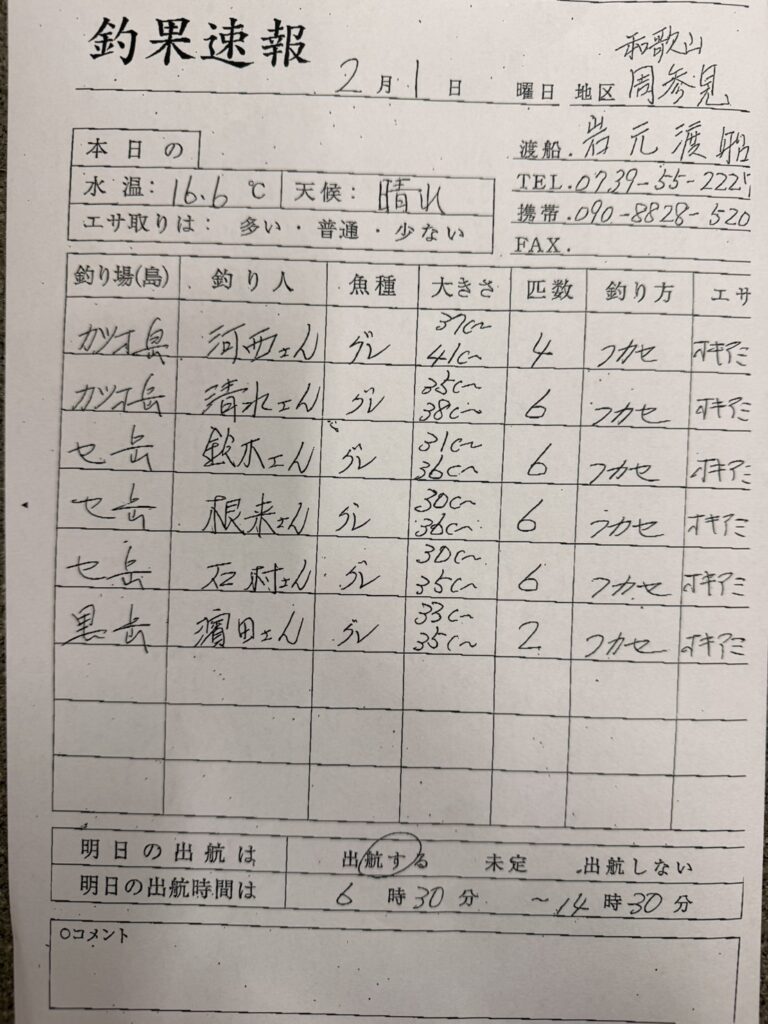 釣果速報
2月1日 曜日 地区 和歌山 周参見
渡船. 岩元渡船
TEL.0739-55-222
携帯.090-8828-520
FAX.
本日の
水温: 16.6℃ 天候: 晴れ
エサ取りは: 多い・普通・少ない
釣り場(島) 釣り人 魚種 大きさ 匹数 釣り方 エサ
カツオ島 河西さん グレ 37㎝ 41㎝ 4 フカセ オキアミ
カツオ岳 清水さん グレ 35㎝ 38㎝ 6 フカセ オキアミ
セ岳 鈴木さん グレ 31㎝ 36㎝ 6 フカセ オキアミ
セ岳 根来さん グレ 30㎝ 36㎝ 6 フカセ オキアミ
セ岳 石村さん グレ 30㎝ 35㎝ 6 フカセ オキアミ
黒岳 濱田さん グレ 33㎝ 35㎝ 2 フカセ オキアミ
明日の出航は 出航する 未定 出航しない
明日の出航時間は 6時30分 ～14時30分
○コメント